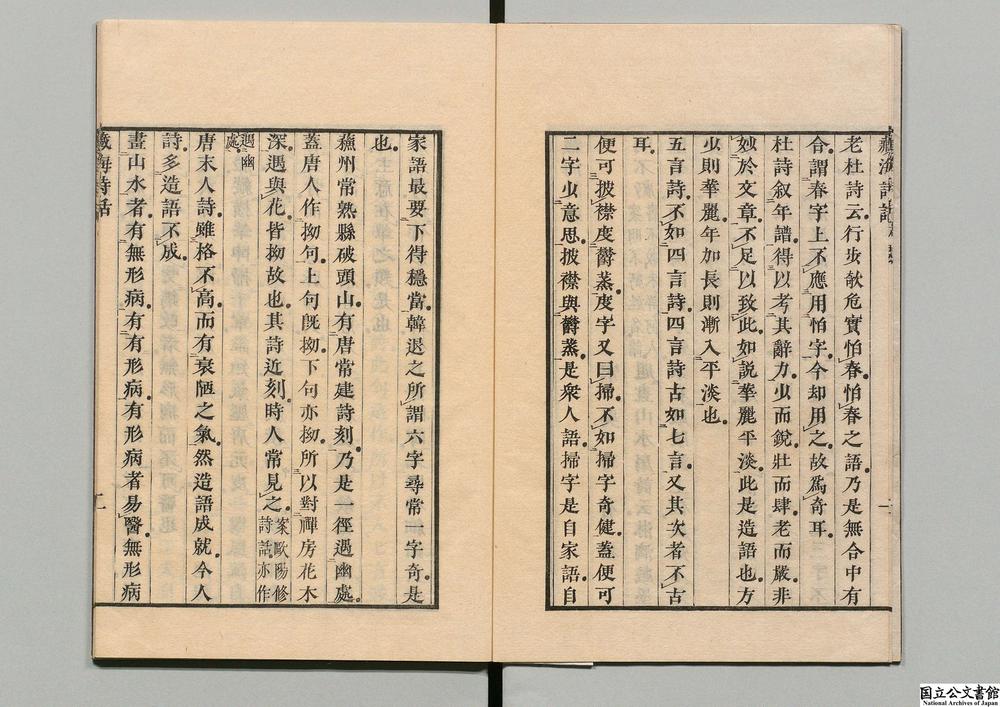 老杜詩云行步欹危實怕春怕春之語乃是無合中有
合謂春字上不應用怕字今却用之故爲奇耳
杜詩叙年譜得以考其辭力少而銳壯而肆老而嚴非
妙於文章不足以致此如說華麗平淡此是造語也方
少則華麗年加長則漸入平淡也
五言詩不如四言詩四言詩古如七言又其次者不古
耳
便可披襟度欝蒸度字又曰掃不如掃字奇健蓋便可
二字少意思披襟與欝蒸是衆人語掃字是自家語自
家語最要下得穩當韓退之所謂六字尋常一字奇是
也
蘓州常熟縣破頭山有唐常建詩刻乃是一徑遇幽處
蓋唐人作拗句上句旣拗下句亦拗所以對禪房花木
深遇與花皆拗故也其詩近刻時人常見之案歐陽修詩話亦作
遇幽處
唐末人詩雖格不高而有衰陋之氣然造語成就今人
詩多造語不成
畫山水者有無形病有有形病有形病者易醫無形病
藏海詩話
國立公文書館
National Archives of Japan